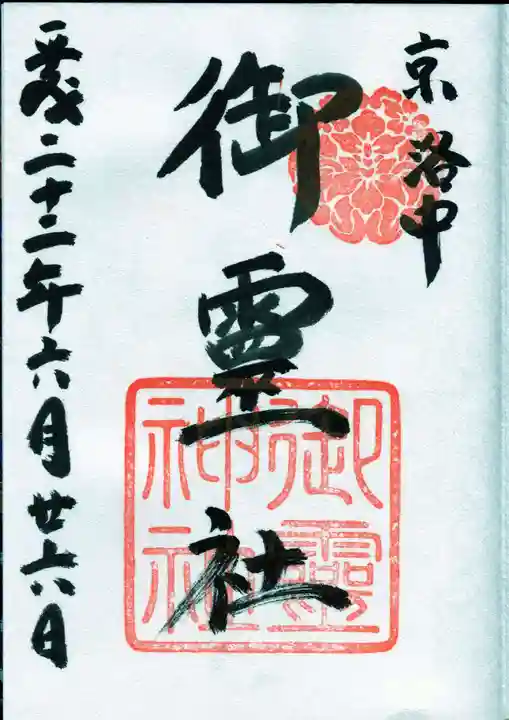 京洛中
御霊社
御靈神社
平成二十二年六月廿六日